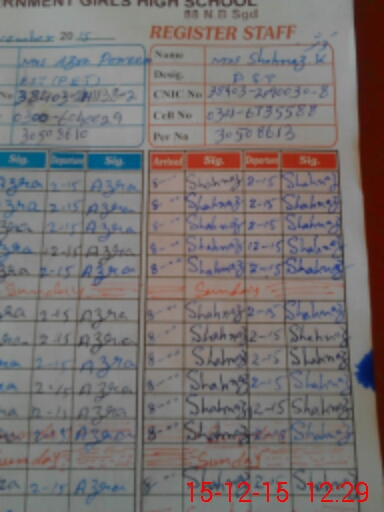 ERNMENT GIRLS HIGH SCHOOL
88 N B Sgd
cember 20 15 REGISTER STAFF
Mrs Azra Name Mrs Shahnaz K
Desig. P S T
CNIC No
Cell No 0341-6735588
30508610 Per No 30508613
Sig. Departure Sig. Arrived Sig. Departure Sig.
Azra 2-15 Azra 8-- Shahnaz 2-15 Shahnaz
zra 2-15 Azra 8-- Shahnaz 2-15 Shahnaz
zra 2-15 Azra 8-- Shahnaz 2-15 Shahnaz
zra 12-15 Azra 8-- Shahnaz 12-15 Shahnaz
zra 2-15 Azra 8-- Shahnaz 2-15 Shahnaz
Sunday Sunday
ra 2-15 Azra 8-- Shahnaz 2-15 Shahnaz
ra 2-15 Azra 8-- Shahnaz 2-15 Shahnaz
ra 2-15 Azra 8-- Shahnaz 2-15 Shahnaz
ra 2-15 Azra 8-- Shahnaz 2-15 Shahnaz
ra 2-15 Azra 8-- Shahnaz 2-15 Shahnaz
2-15 Azra 8-- Shahnaz 2-15 Shahnaz
unday Sunday
ra 2-15 Azra 8-- Shahnaz 2-15 Shahnaz
15-12-15 12:29